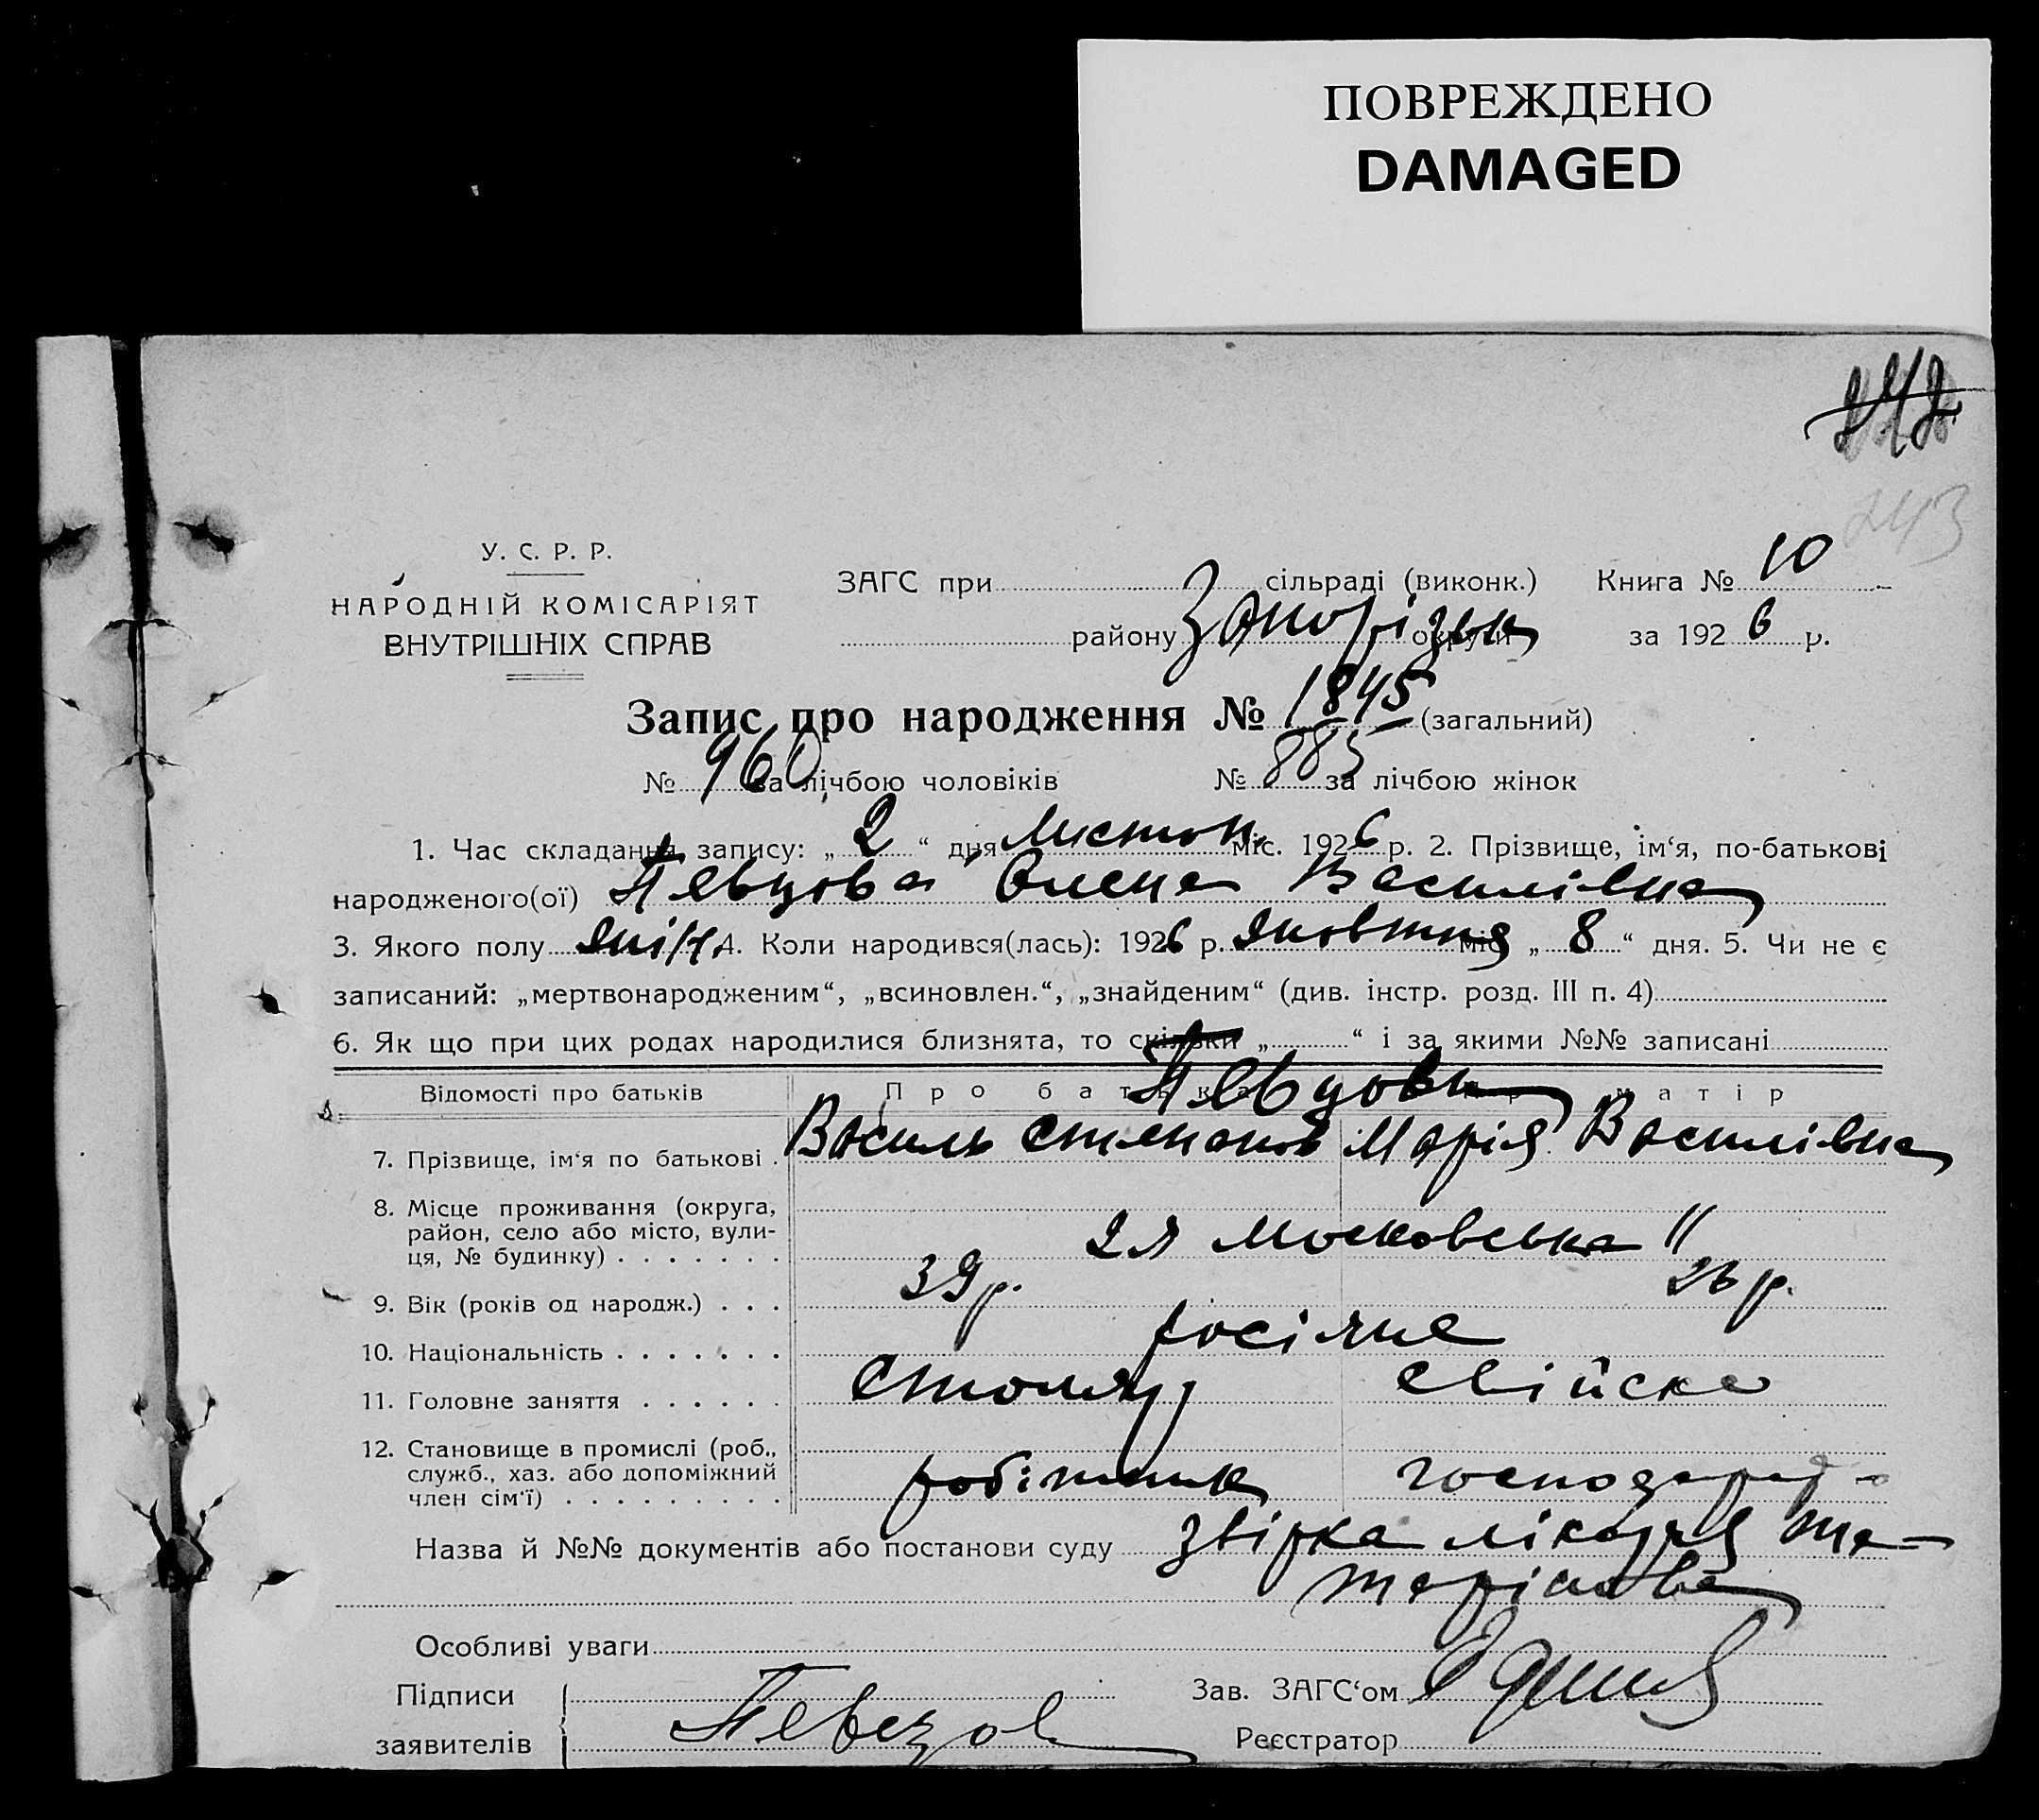 ПОВРЕЖДЕНО
DAMAGED
242
243
У. С. Р. Р.
НАРОДНІЙ КОМІСАРІЯТ
ВНУТРІШНІХ СПРАВ
ЗАГС при сільраді (виконк.) Книга № 10
району Запорізьк округи за 1926 р.
Запис про народження № 1845 (загальний)
№ 960 за лічбою чоловіків № 885 за лічбою жінок
1. Час складання запису: „2“ дня Листоп. міс. 1926 р. 2. Прізвище, ім‘я, по-батькові
народженого(ої) Певцова Олена Василівна
3. Якого полу жін. 4. Коли народився(лась): 1926 р. жовтня міс „8“ дня. 5. Чи не є
записаний: „мертвонародженим“, „всиновлен.“, „знайденим“ (див. інстр. розд. III п. 4)
6. Як що при цих родах народилися близнята, то скільки „ “ і за якими №№ записані
Відомості про батьків Про батька Про матір
Певцови
7. Прізвище, ім‘я по батькові . Василь Степанов Марія Василівна
8. Місце проживання (округа,
район, село або місто, вули-
ця, № будинку) . . . . . . . 2я Московська 11
9. Вік (років од народж.) . . . 39 р. 26 р.
10. Національність . . . . . . . росіяне
11. Головне заняття . . . . . . столяр свійске
12. Становище в промислі (роб.,
служб., хаз. або допоміжний
член сім‘ї) . . . . . . . . . робітник господар
Назва й №№ документів або постанови суду звірка лікаря
Особливі уваги
Підписи Зав. ЗАГС‘ом
заявителів Певцов Реєстратор